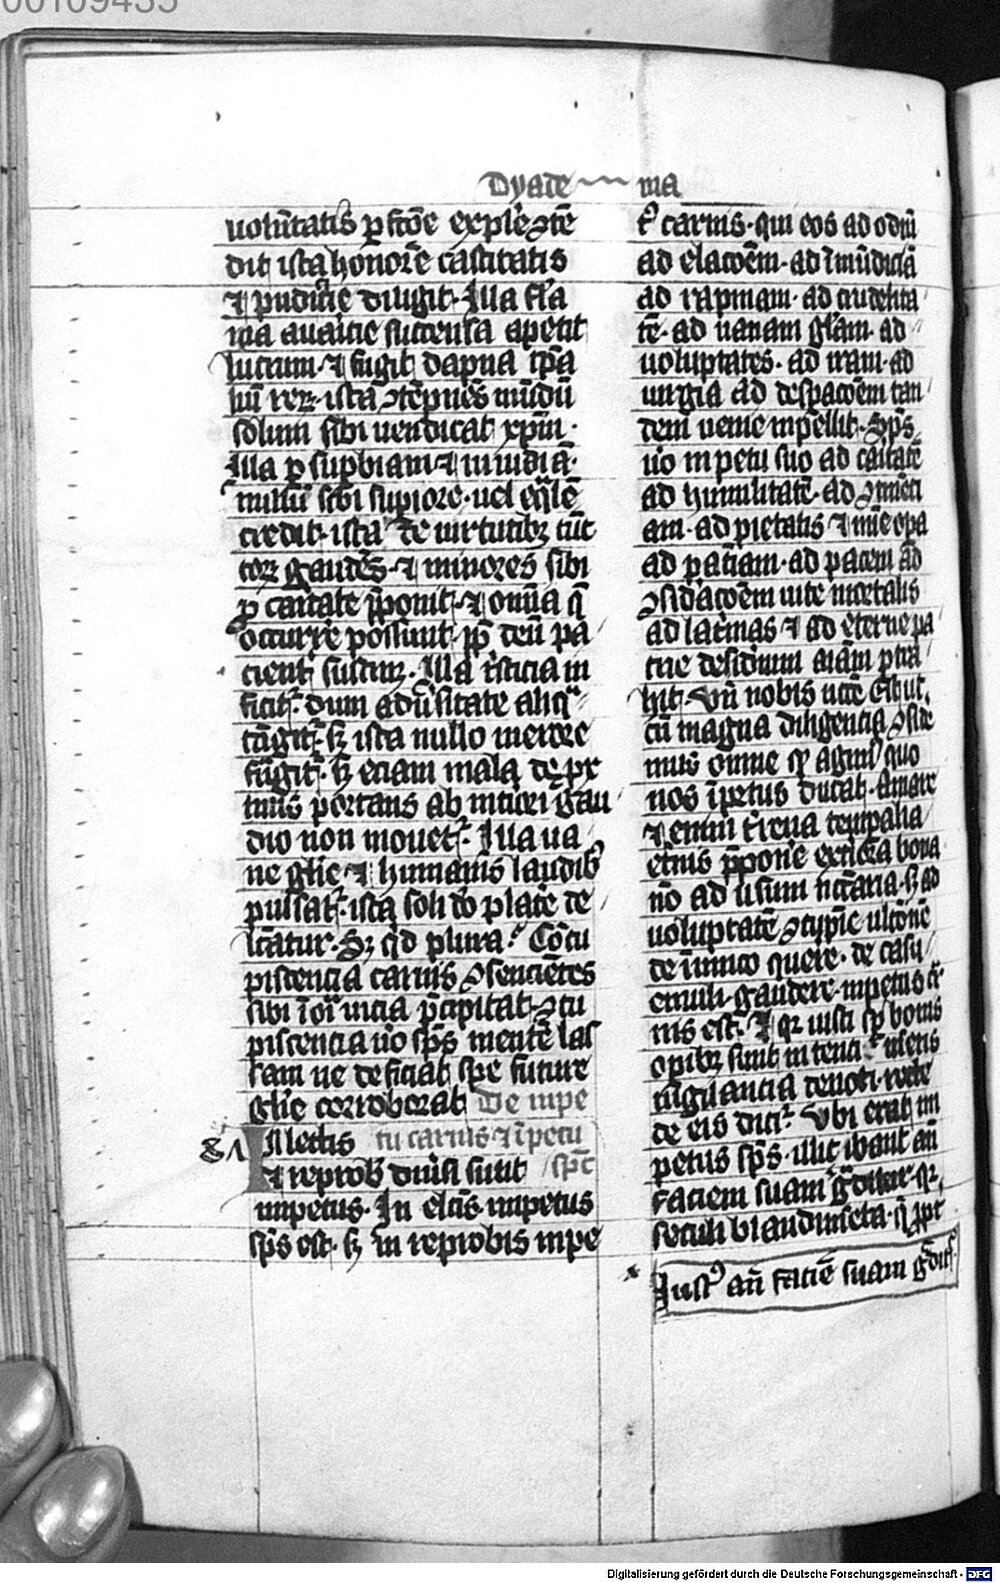 00109435
Dyade ma
uolūtatis ꝑ fcōe explē ↄtē
dit ista honorē castitatis
⁊ pudicitie diligit. Illa fla
ma auaricie succensa apetit
lucrum ⁊ fugit dāpna tpa
liū reꝝ. ista ↄtēpnēs mūdū
solum sibi uendicat xpm̄.
Illa ꝑ supbiam ⁊ inuidiā.
nullū sibi supiorē. uel eqlē
credit. ista de uirtutibꝫ cūc
toꝝ gaudēs. ⁊ minores sibi
ꝓ caritate p̄ponit. ⁊ omīa q̄
occurrē possunt. ꝓp̄ deū pa
cient̄ sustinꝫ. Illa tristicia in
ficit̄. dum aduersitate aliqᵃ
tāgit̄. sꝫ ista nullo merore
fugit̄. sꝫ eciam mala de ꝓx
imis portans ab intiori gau
dio non mouet̄. Illa ua
ne glīe ⁊ humanis laudibꝫ
pulsat̄. ista soli dō placē de
lcātur. Sꝫ qd plura. Cōcu
piscencia carnis ↄsencietēs
sibi in oīa uicia p̄cipitat. ↄcu
piscencia uō sp̄s mentē las
sam ne deficiat spe future
glīe corroborat De impe
81 Electis tu carnis ⁊ īpetu
⁊ reprobis diuisi sunt sp̄c
impetus. In elcīs impetus
sp̄s est. sꝫ in reprobis impe
t᷒ carnis. qui eos ad odiū
ad elacōem. ad īmūdiciā
ad rapinam. ad crudelita
tē. ad uanam glām. ad
uoluptates. ad iram. ad
iurgia ad despacōem tan
dem uenie inpellit. Sp̄s
uō inpetu suo ad caritatē
ad humilitatē. ad ↄtinēci
am. ad pietatis ⁊ mīe opa
ad paciam. ad pacem ad
ↄsidacōem uite mortalis
ad lacimas ⁊ ad eterne pa
trie desidium aiām ptra
hit. Vn̄ nobis ucīē est ut
cū magna diligencia ↄside
mus omne qd agim᷒ quo
nos īpetus ducat. Amare
⁊enim t̄rena tempalia
etnis p̄ponē extiora bona
nō ad usum nccāria. sꝫ ad
uoluptatē ↄcupīē ultōnē
de inimico querē. de casu
emuli gaudere. inpetus car
nis est. At qr iusti sp bonis
opibꝫ sunt intenti mens
uigilancia deuoti. recte
de eis dicit̄. Vbi erat im
petus sp̄s. illic ibant an̄
faciem suam gditur. qr
seculi blandimēta. q ꝓpt
Iust᷒ an̄ faciē suam gdit̄.
Digitalisierung gefördert durch die Deutsche Forschungsgemeinschaft - DFG